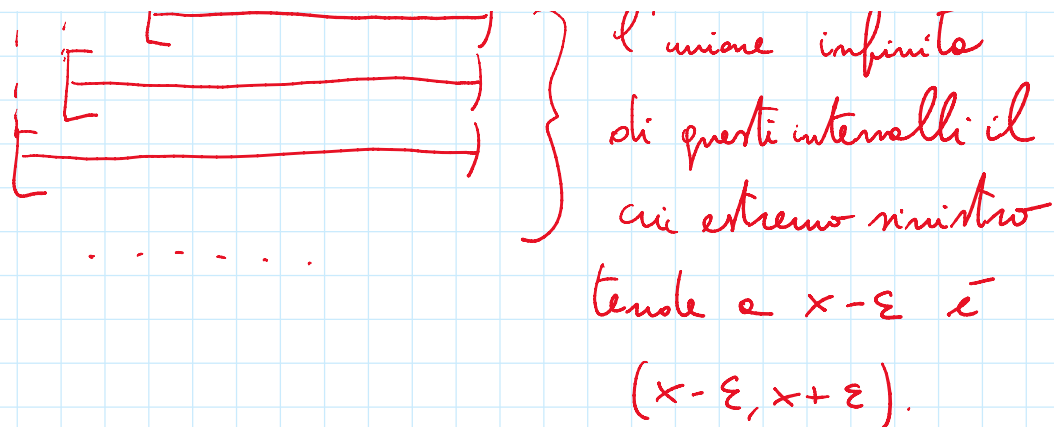 l'unione infinita
di questi intervalli il
cui estremo sinistro
tende a x-ε è
(x-ε, x+ε).